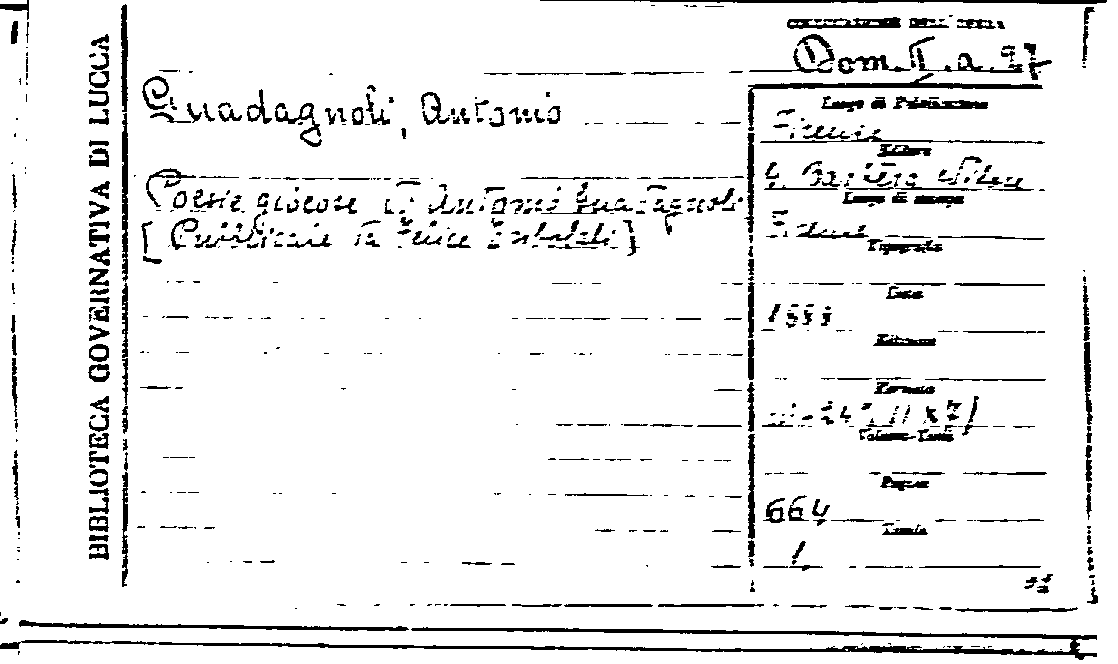 BIBLIOTECA GOVERNATIVA DI LUCCA
COLLOCAZIONE DELL'OPERA
Dom. II. a. 27
Guadagnoli, Antonio
Poesie giocose di Antonio Guadagnoli
[Pubblicate da Felice]
Luogo di Pubblicazione
Firenze
Editore
G. Barbèra
Luogo di stampa
Firenze
Tipografia
Data
Edizione
Formato
in-24°
Volume-Tomo
Pagine
664
Tavole
1.